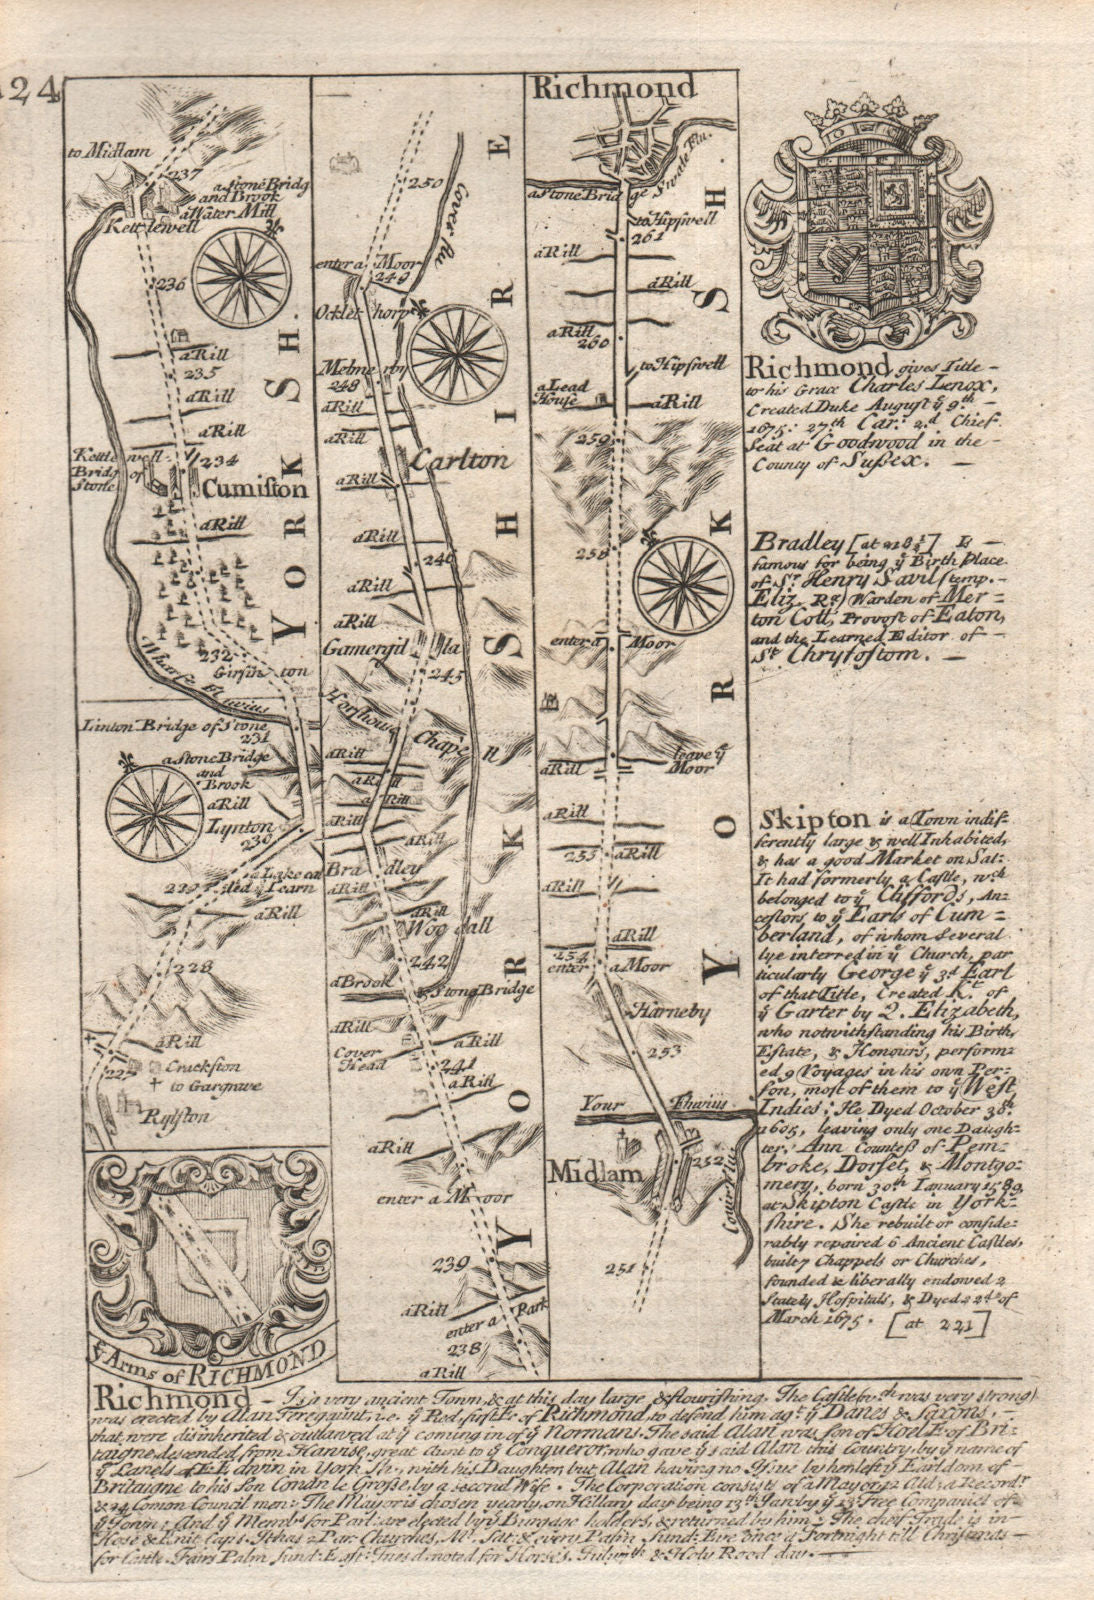 124
to Midlam
237
a Stone Bridg
and Brook
a Water Mill
Kettlewell
236
a Rill
235
a Rill
a Rill
Kettlewell
Bridg of
Stone
234
Cumiston
a Rill
YORK SH.
232
Girsinton
Wharfe Fluvius
Linton Bridge of Stone
231
a Stone Bridge
and
Brook
a Rill
Lynton
230
a Lake on
229
a Rill
228
a Rill
227
Crackston
to Gargrave
Rylston
ẏ Arms of RICHMOND
250
Cover flu
enter a Moor
249
Ocklethorp
Melmerby
248
a Rill
a Rill
Carlton
a Rill
a Rill
246
a Rill
a Rill
Gamergil
245
Horshouse Chapell
a Rill
a Rill
a Rill
a Rill
a Rill
Bradley
a Rill
a Rill
Woodall
242
a Brook
Stone Bridge
a Rill
a Rill
Cover
Head
241
a Rill
a Rill
enter a Moor
239
a Rill
enter a Park
238
a Rill
YORKSHIRE
Richmond
Swale Flu.
a Stone Bridge
to Hipswell
261
a Rill
a Rill
a Rill
260
to Hipswell
a Lead
House
a Rill
259
258
enter a Moor
leave ẏ
Moor
a Rill
a Rill
255
a Rill
a Rill
a Rill
254
enter a Moor
Harneby
253
Your Fluvius
Midlam
252
Cover flu.
251
YORK SH.
Richmond gives Title
to his Grace Charles Lenox,
Created Duke August ẏ 9th
1675: 27th Car: 2d Chief
Seat at Goodwood in the
County of Sußex.
Bradley [at 218½] Is
famous for being ẏ Birth Place
of Sr Henry Savil (temp.
Eliz. Ra) Warden of Mer=
ton Coll, Provost of Eaton,
and the Learned Editor of
St Chrysostom.
Skipton is a Town indif
ferently large & well Inhabited,
& has a good Market on Sat:
It had formerly a Castle, wch
belonged to ẏ Cliffords, An-
cestors to ẏ Earls of Cum=
berland, of whom several
lye interred in ẏ Church, par
ticularly George ẏ 3d Earl
of that Title, Created Kt of
ẏ Garter by Q. Elizabeth,
who notwithstanding his Birth,
Estate, & Honours, perform=
ed 9 Voyages in his own Per-
son, most of them to ẏ West
Indies: He Dyed October 38th
1605, leaving only one Daugh=
ter, Ann Counteß of Pem=
broke, Dorset, & Montgo=
mery, born 30th Ianuary 1589
at Skipton Castle in York=
shire. She rebuilt or conside=
rably repaired 6 Ancient Castles,
built 7 Chappels or Churches,
founded & liberally endowed 2
Stately Hospitals, & Dyed 22d of
March 1675. [at 221]
Richmond Is a very ancient Town, & at this day large & flourishing. The Castle (wch was very strong)
was erected by Alan Feregaunt, i.e. ẏ Red, first E: of Richmond, to defend him agt ẏ Danes & Saxons,
that were disinherited & outlawed at ẏ coming in of ẏ Normans. The said Alan was son of Hoel E. of Bri=
taigne, descended from Hawise, great Aunt to ẏ Conqueror, who gave ẏ said Alan this Country, by ẏ name of
ẏ Lands of E. Edwin in York Sh., with his Daughter, but Alan having no Issue by her left ẏ Earldom of
Britaigne to his Son Conan le Große, by a second Wife. The Corporation consists of a Mayor, 12 Ald: a Recordr
& 24 Comon Council men: The Mayor is chosen yearly, on Hillary day being 13th Jan: by ẏ 13 Free Companies of
ẏ Town: And ẏ Membrs for Parl: are elected by ẏ Burgage holders, & returned by him: The cheif Trade is in
Hose & Knit Caps. It has 2 Par: Churches, Mt Sat: & every Palm Sund: Eve once a Fortnight till Christmas
for Cattle. Fairs Palm Sund: noted for Horses, & Holy Rood day.